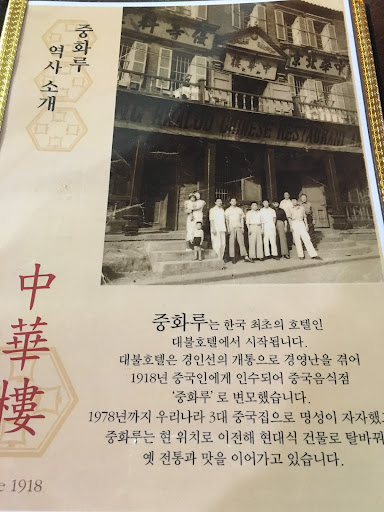 중화루
역사 소개
中華樓
중화루는 한국 최초의 호텔인
대불호텔에서 시작됩니다.
대불호텔은 경인선의 개통으로 경영난을 겪어
1918년 중국인에게 인수되어 중국음식점
‘중화루’ 로 변모했습니다.
1978년까지 우리나라 3대 중국집으로 명성이 자자했고
중화루는 현 위치로 이전해 현대식 건물로 탈바꿔
옛 전통과 맛을 이어가고 있습니다.
e 1918